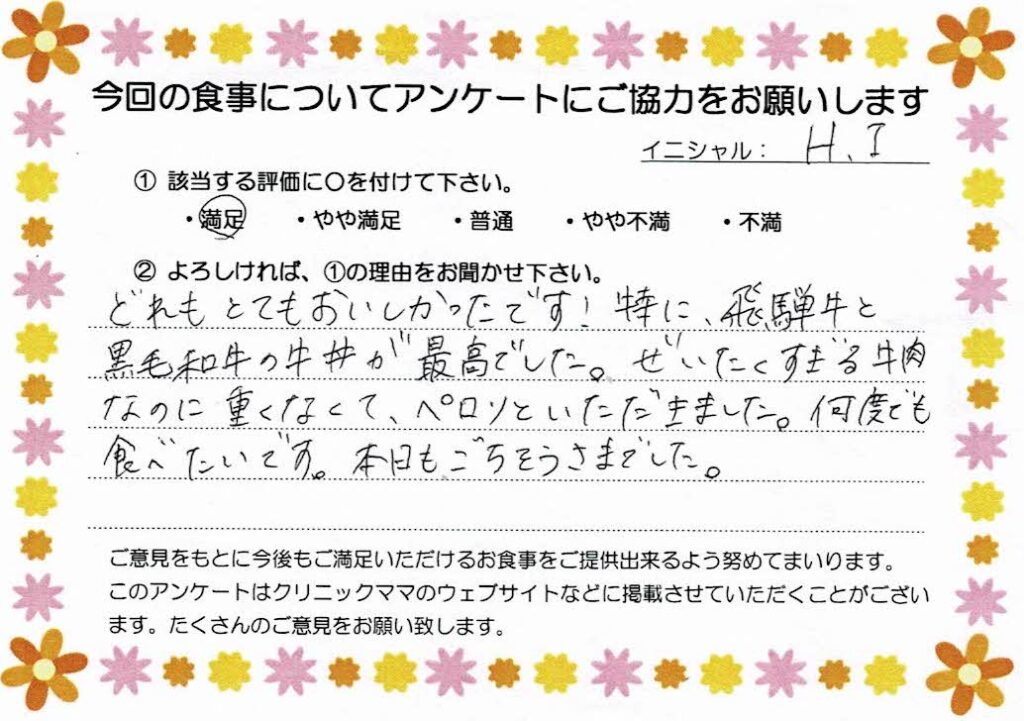 今回の食事についてアンケートにご協力をお願いします
イニシャル： H.I
① 該当する評価に〇を付けて下さい。
・満足 ・やや満足 ・普通 ・やや不満 ・不満
② よろしければ、①の理由をお聞かせ下さい。
どれもとてもおいしかったです！特に、飛騨牛と
黒毛和牛の牛丼が最高でした。ぜいたくすぎる牛肉
なのに重くなくて、ペロッといただきました。何度でも
食べたいです。本日もごちそうさまでした。
ご意見をもとに今後もご満足いただけるお食事をご提供出来るよう努めてまいります。
このアンケートはクリニックママのウェブサイトなどに掲載させていただくことがござい
ます。たくさんのご意見をお願い致します。